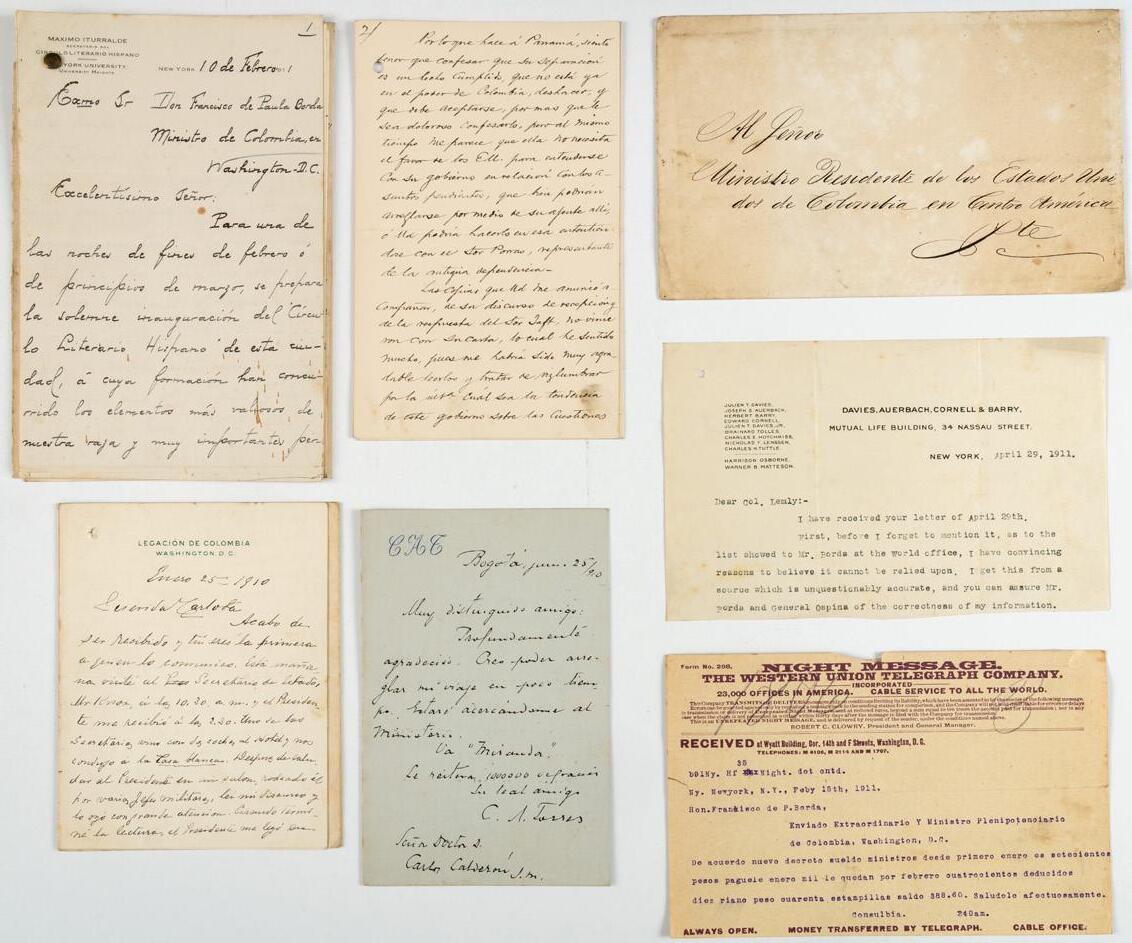 1
MAXIMO ITURRALDE
SECRETARIO DEL
CIRCULO LITERARIO HISPANO
YORK UNIVERSITY
UNIVERSITY HEIGHTS
NEW YORK 10 de Febrero 1
Excmo Sr Don Francisco de Paula Borda
Ministro de Colombia, en
Washington-D.C.
Excelentísimo Señor:
Para una de
las noches de fines de febrero ó
de principios de marzo, se prepara
la solemne inauguración del "Círcu-
lo Literario Hispano" de esta ciu-
dad, á cuya formación han concu-
rrido los elementos más valiosos de
nuestra raza y muy importantes per
2/
Por lo que hace á Panamá, siento
tener que confesar que su separacion
es un hecho cumplido, que no está ya
en el poder de Colombia, deshacer, y
que debe aceptarse, por mas que le
sea doloroso confesarlo, pero al mismo
tiempo me parece que ella no necesita
el favor de los EU. para entenderse
con su gobierno en relación con los a-
suntos pendientes, que bien podrian
arreglarse por medio de su ajente allí,
ó Ud podria hacerlo en esa entendien
dose con el Sor Porras, representante
de la antigua dependencia-
Las copias que Ud me anunció a-
compañar, de su discurso de recepción y
de la respuesta del Sor Taft, no vinie
ron con su carta, lo cual he sentido
mucho, pues me habria sido muy agra-
dable leerlos y tratar de vizlumbrar
por la cual sea la tendencia
de este gobierno sobre las cuestiones
Al Señor
Ministro Residente de los Estados Uni-
dos de Colombia en Centro América
Pte
JULIEN T. DAVIES,
JOSEPH S. AUERBACH,
HERBERT BARRY,
EDWARD CORNELL,
JULIEN T. DAVIES, JR,
BRAINARD TOLLES,
CHARLES E. HOTCHKISS,
NICHOLAS F. LENSSEN,
CHARLES H. TUTTLE.
HARRISON OSBORNE,
WARNER B. MATTESON.
DAVIES, AUERBACH, CORNELL & BARRY,
MUTUAL LIFE BUILDING, 34 NASSAU STREET.
NEW YORK, April 29, 1911.
Dear Col. Lemly:-
I have received your letter of April 29th.
First, before I forget to mention it, as to the
list showed to Mr. Borda at the World office, I have convincing
reasons to believe it cannot be relied upon. I get this from a
source which is unquestionably accurate, and you can assure Mr.
Borda and General Ospina of the correctness of my information.
LEGACIÓN DE COLOMBIA
WASHINGTON, D.C.
Enero 25 - 1910
Querida Carlota
Acabo de
ser recibido y tú eres la primera
a quien lo comunico. Esta maña
na visité al Secretario de Estado,
Mr Knox, á la 10.30 a.m. y el Presiden
te me recibió á la 2.30. Uno de los
Secretarios vino con dos coches al Hotel y nos
condujo á la Casa blanca. Despues de salu-
dar al Presidente en un salon, rodeado él
por varios Jefes militares, leí mi discurso y
lo oyó con grande atencion. Cuando termi-
né la lectura, el Presidente me leyó su
CAT
Bogotá, jun. 25/90
Muy distinguido amigo:
Profundamente
agradecido. Creo poder arre-
glar mi viaje en poco tiem-
po. Estaré acercándome al
Ministerio.
Va "Miranda".
Le reitera, 1000000 de gracias
Su leal amigo
C. A. Torres
Señor Doctor D.
Carlos Calderón S.m.
Form No. 298.
NIGHT MESSAGE.
THE WESTERN UNION TELEGRAPH COMPANY.
INCORPORATED
23,000 OFFICES IN AMERICA. CABLE SERVICE TO ALL THE WORLD.
ROBERT C. CLOWRY, President and General Manager.
RECEIVED at Wyatt Building, Cor. 14th and F Streets, Washington, D.C.
TELEPHONES: M 4106, M 2114 AND M 1707.
35
b91Ny. Hf Night. dot cntd.
Ny. Newyork, N.Y., Feby 15th, 1911.
Hon.Francisco de P.Borda,
Enviado Extraordinario Y Ministro Plenipotenciario
de Colombia, Washington, D.C.
De acuerdo nuevo decreto sueldo ministros desde primero enero es setecientos
pesos paguele enero mil le quedan por febrero cuatrocientos deducidos
diez riano peso cuarenta estampillas saldo 388.60. Saludole afectuosamente.
Consulbia. 240am.
ALWAYS OPEN. MONEY TRANSFERRED BY TELEGRAPH. CABLE OFFICE.